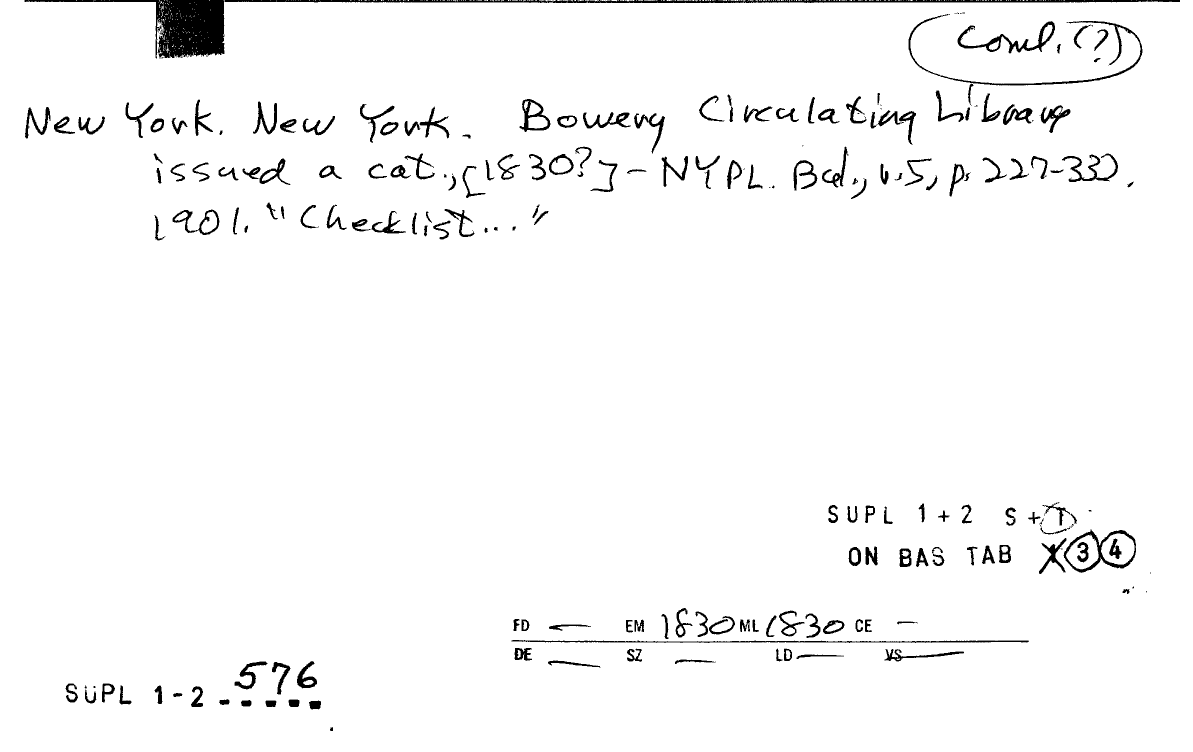 Coml. (?)
New York. New York. Bowery Circulating Library
issued a cat., [1830?] - NYPL. Bul., v.5, p. 227-332.
1901. "Checklist..."
SUPL 1+2 S+T
ON BAS TAB X 3 4
FD — EM 1830 ML 1830 CE —
DE — SZ — LD — VS —
SUPL 1-2 576